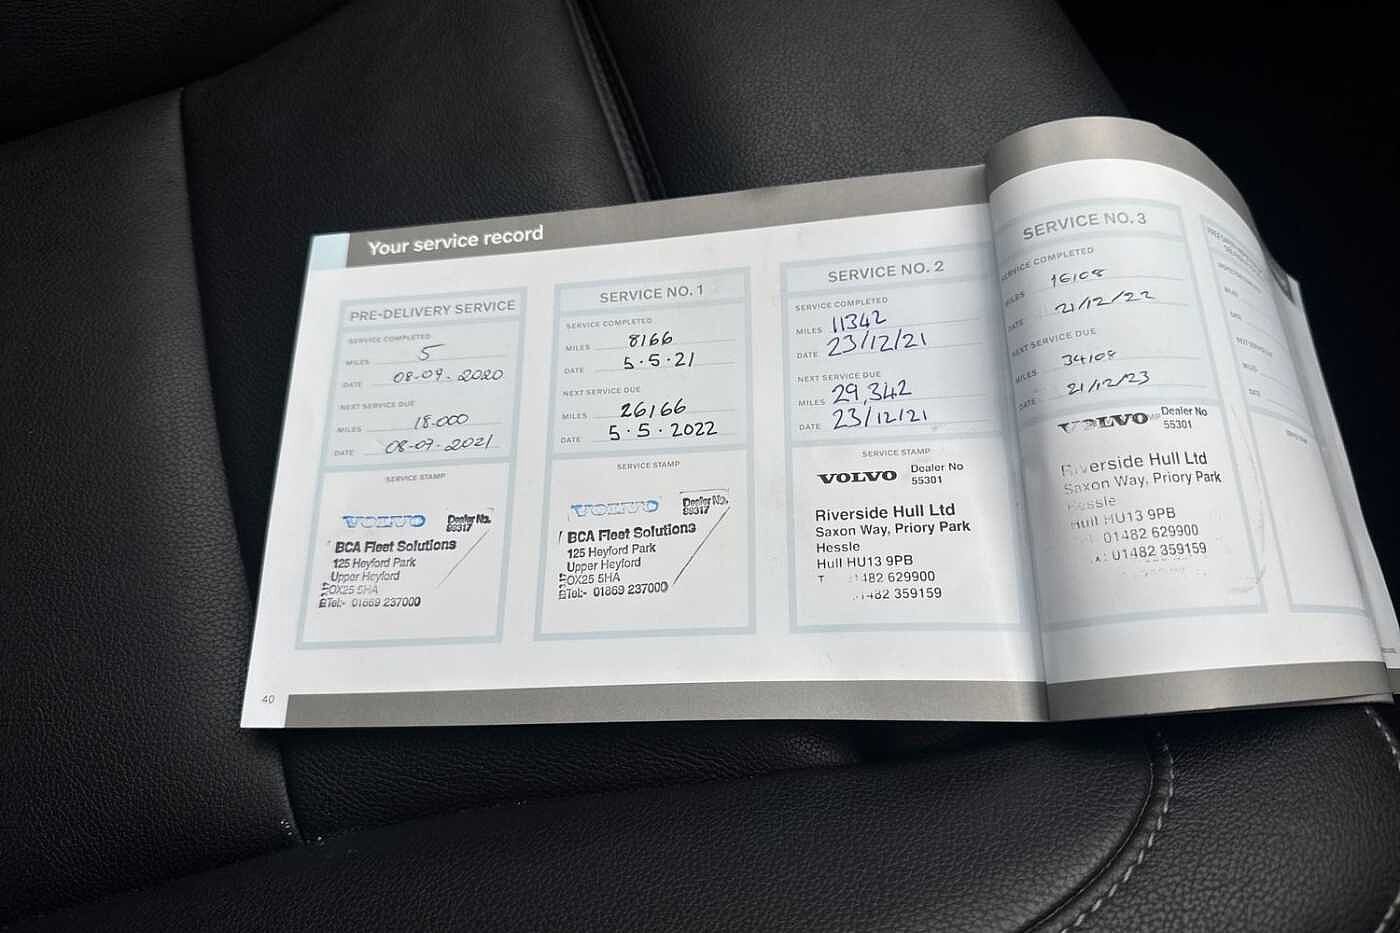 Your service record
PRE-DELIVERY SERVICE
SERVICE COMPLETED
MILES 5
DATE 08-07-2020
NEXT SERVICE DUE
MILES 18.000
DATE 08-07-2021
SERVICE STAMP
VOLVO Dealer No.
BCA Fleet Solutions
125 Heyford Park
Upper Heyford
OX25 5HA
Tel:- 01869 237000
SERVICE NO. 1
SERVICE COMPLETED
MILES 8166
DATE 5.5.21
NEXT SERVICE DUE
MILES 26166
DATE 5.5.2022
SERVICE STAMP
VOLVO Dealer No.
BCA Fleet Solutions
125 Heyford Park
Upper Heyford
OX25 5HA
Tel:- 01869 237000
SERVICE NO. 2
SERVICE COMPLETED
MILES 11342
DATE 23/12/21
NEXT SERVICE DUE
MILES 29,342
DATE 23/12/21
SERVICE STAMP
VOLVO Dealer No
55301
Riverside Hull Ltd
Saxon Way, Priory Park
Hessle
Hull HU13 9PB
T 1482 629900
1482 359159
SERVICE NO. 3
SERVICE COMPLETED
MILES 16108
DATE 21/12/22
NEXT SERVICE DUE
MILES 34108
DATE 21/12/23
VOLVO Dealer No
55301
Riverside Hull Ltd
Saxon Way, Priory Park
Hessle
Hull HU13 9PB
01482 629900
01482 359159
40